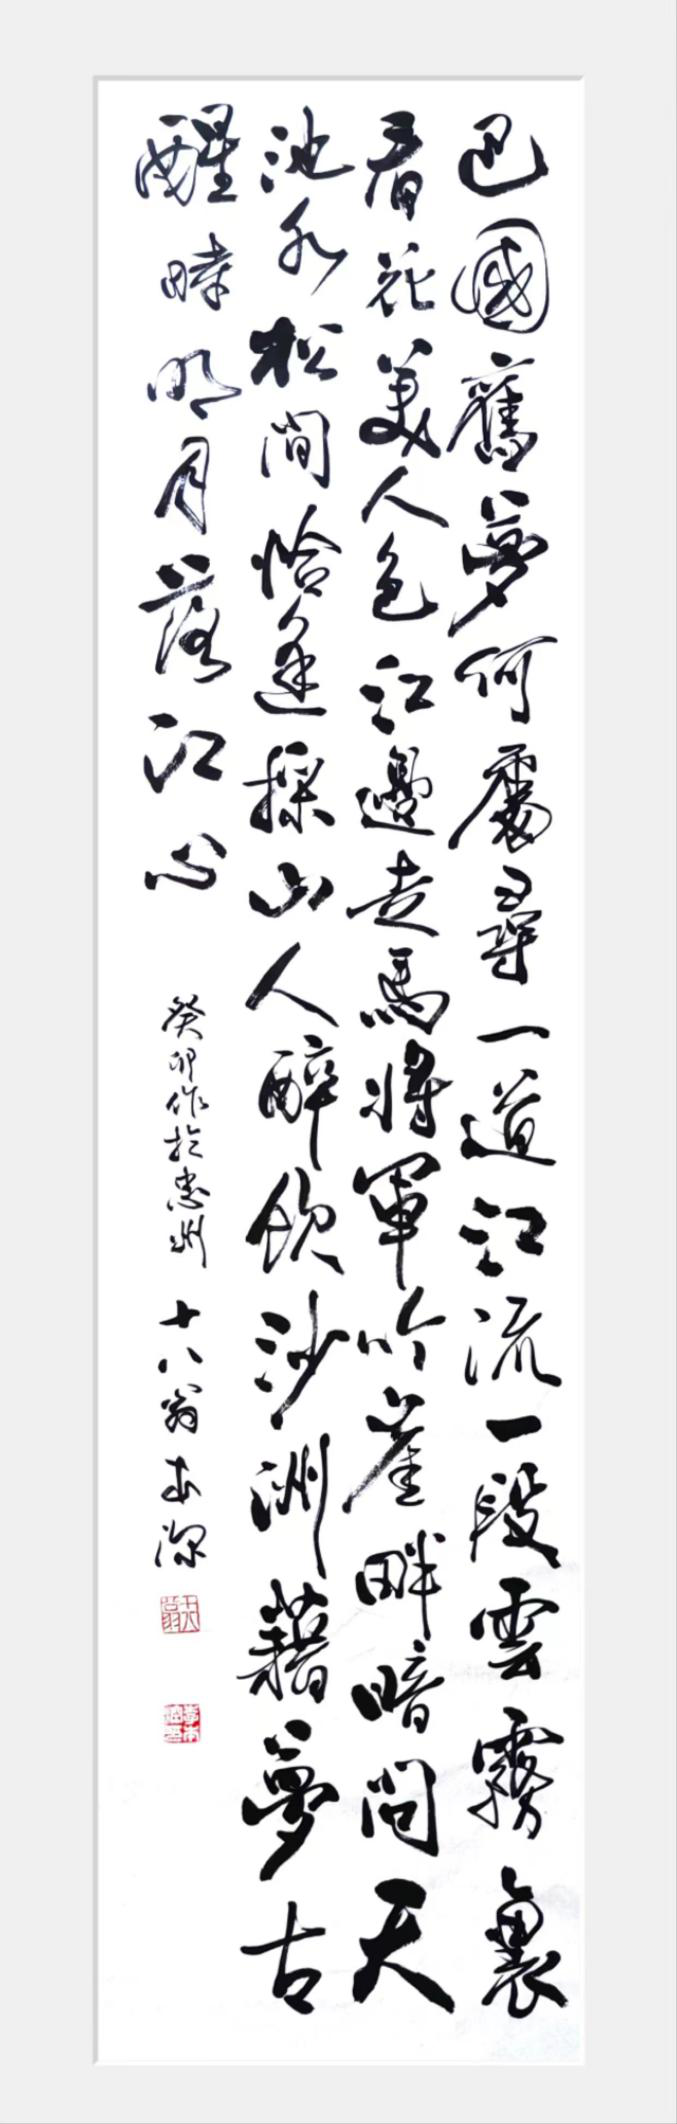 巴國舊夢何處尋一道江流一段雲霧裏
看花美人色江邊走馬將軍吟崖畔暗問天
池水松間恰逢採山人醉飲沙洲藉夢古
醒時明月落江心
癸卯作於忠州十八翁